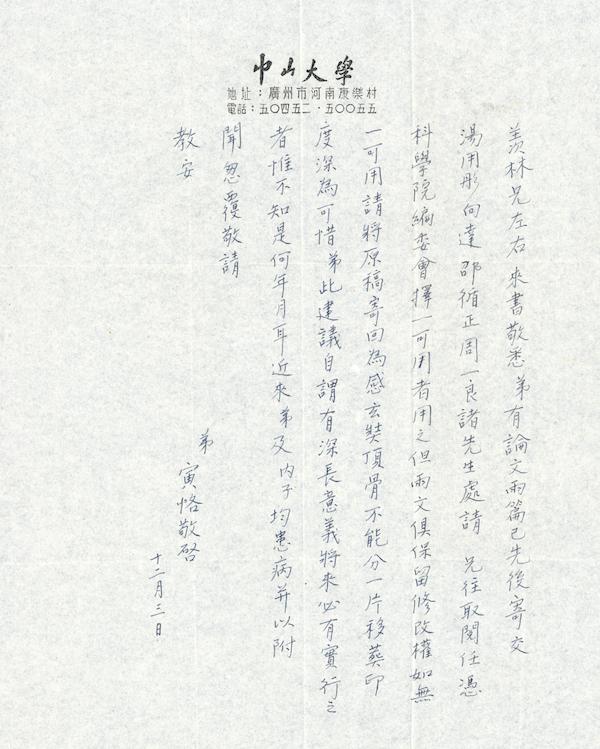 中山大學
地址：廣州市河南康樂村
電話：五〇四五二·五〇〇五五
羨林兄左右 來書敬悉 弟有論文兩篇已先後寄交
湯用彤向達邵循正周一良諸先生處請 兄往取閱任憑
科學院編委會擇一可用者用之但兩文俱保留修改權如無
一可用請將原稿寄回為感玄奘頂骨不能分一片移葬印
度深為可惜弟此建議自謂有深長意義將來必有實行之
者惟不知是何年月耳近來弟及內子均患病并以附
聞怱覆敬請
教安
弟 寅恪敬啓
十二月三日